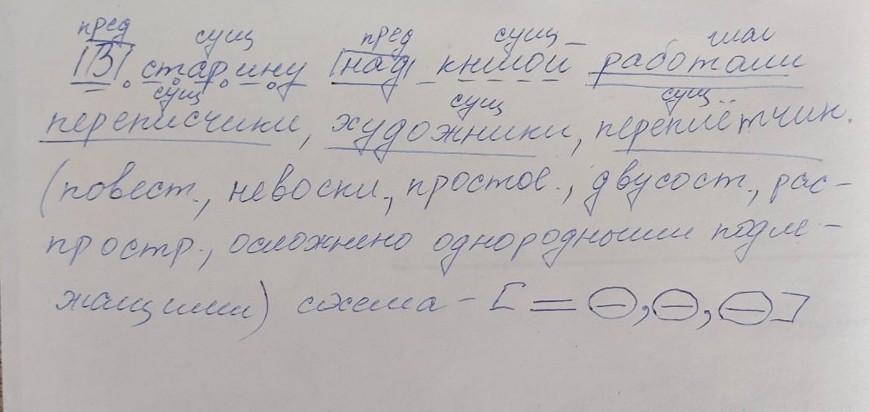 пред сущ пред сущ глаг
|В| старину |над| книгой работали
сущ сущ сущ
переписчики, художники, переплётчик.
(повест., невоскл., простое., двусост., рас-
простр., осложнено однородными подле-
жащими) схема - [ = ⊖, ⊖, ⊖ ]